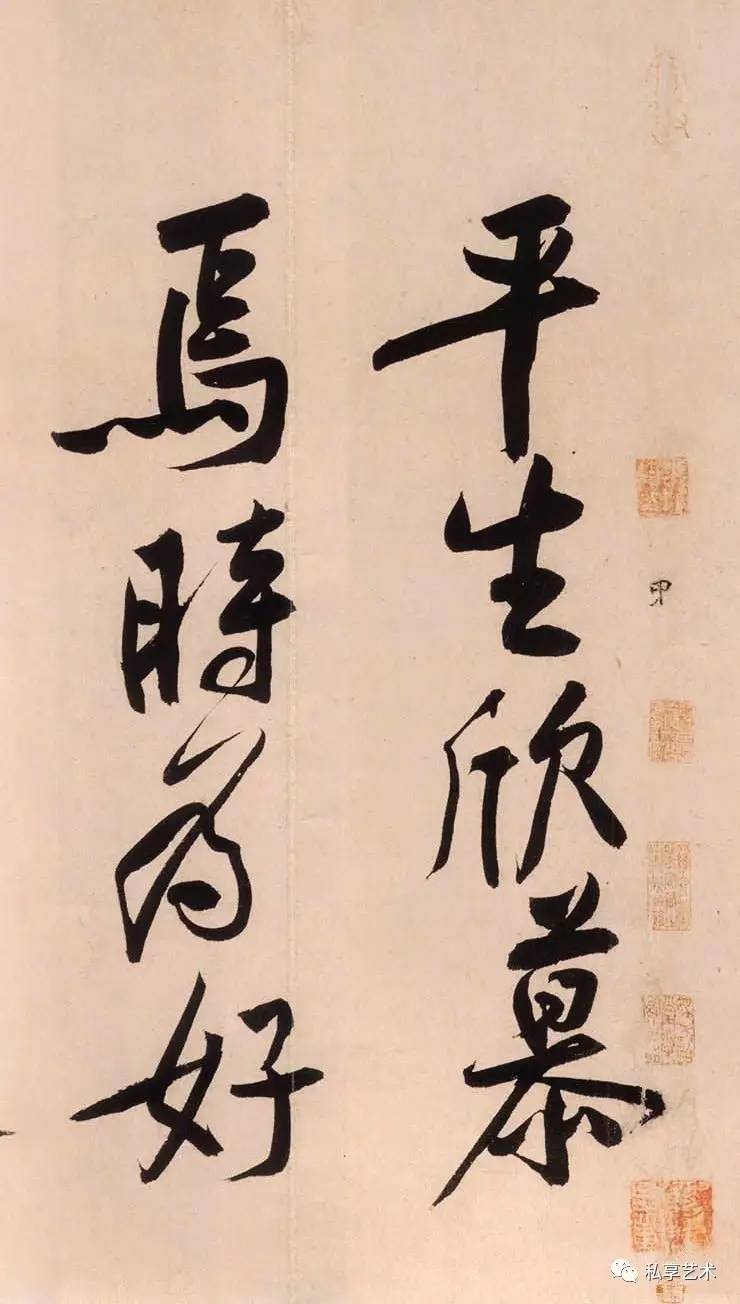 平生欣慕
甲
焉時為好
私享艺术